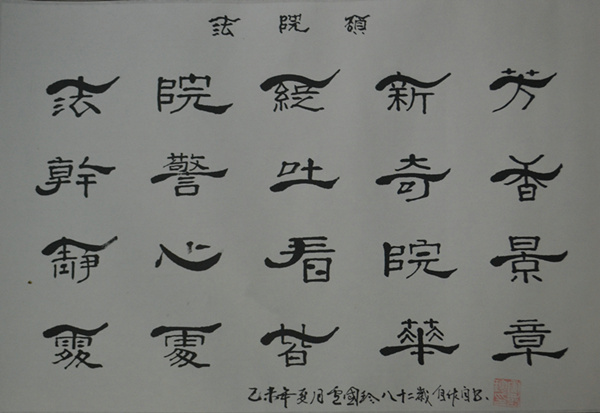 法院
法院綻新芳
幹警吐奇香
靜心看院景
處處皆華章
乙未年夏月國玲八十二歲自作自書